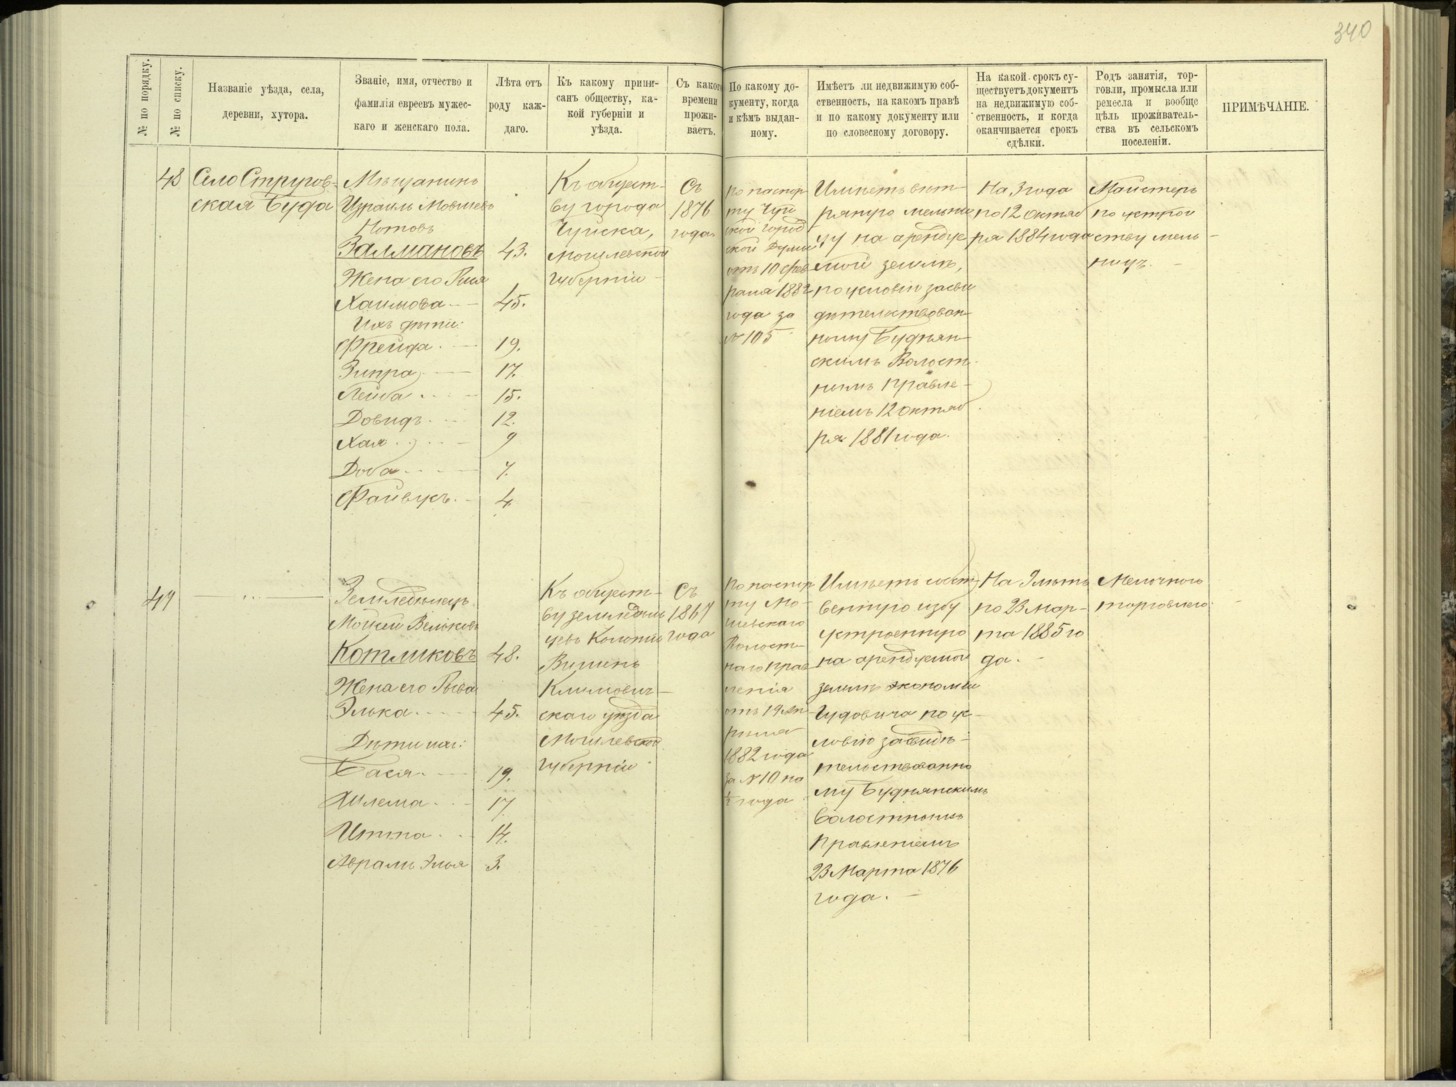 340
№ по порядку.
№ по списку.
Названіе уѣзда, села,
деревни, хутора.
Званіе, имя, отчество и
фамилія евреевъ мужес-
каго и женскаго пола.
Лѣта отъ
роду каж-
даго.
Къ какому припи-
санъ обществу, ка-
кой губерніи и
уѣзда.
Съ какого
времени
прожи-
ваетъ.
По какому до-
кументу, когда
и кѣмъ выдан-
ному.
Имѣетъ ли недвижимую соб-
ственность, на какомъ правѣ
и по какому документу или
по словесному договору.
На какой срокъ су-
ществуетъ документъ
на недвижимую соб-
ственность, и когда
оканчивается срокъ
сдѣлки.
Родъ занятія, тор-
говли, промысла или
ремесла и вообще
цѣль проживатель-
ства въ сельскомъ
поселеніи.
ПРИМѢЧАНІЕ.
48
Село Стругов-
ская Буда
Мѣщанинъ
Израиль Мовшевъ
Нотовъ
Залмановъ 43.
Жена его
Хаимова 45.
Ихъ дѣти:
Фрейда 19.
Зипра 17.
Лейба 15.
Довидъ 12.
Хая 9
Доба 7.
Файвусъ 4.
Къ общест-
ву города
Могилевской
губерніи
Съ
1876
года
По паспор-
ту
ской город
ской Думы
отъ 10 фев
раля 1882
года за
№ 105
Имѣетъ вѣт-
ряную мельни
цу на арендуе
мой землѣ,
по условію засви
дѣтельствован
ному Буднян-
скимъ Волост
нымъ Правле-
ніемъ 12 октяб
ря 1881 года.
На 3 года
по 12 октяб
ря 1884 года
Майстеръ
по устрой
ству мель-
ницъ.
Землевладелецъ
Котликовъ 48.
Жена его Рыва
Элька 45.
Дѣти ихъ:
Бася 19.
Шлема 17
Итта 14.
Абрамъ Элья 3.
Къ общест-
ву земледѣль
цевъ Колоніи
Климович-
скаго уѣзда
Могилевской
губерніи
Съ
1867
года
По паспор
ту
Волост-
наго Прав-
ленія
отъ 19 Ап
рѣля
1882 года
за № 10 на
½ года
Имѣетъ собст-
венную избу
устроенную
на арендуемой
землѣ экономіи
Гудовича по ус-
ловію засвидѣ-
тельствованно
му Буднянскимъ
Волостнымъ
Правленіемъ
23 Марта 1876
года.
На 9 лѣтъ
по 23 Мар-
та 1885 го
да.
Мелочного
торговлею